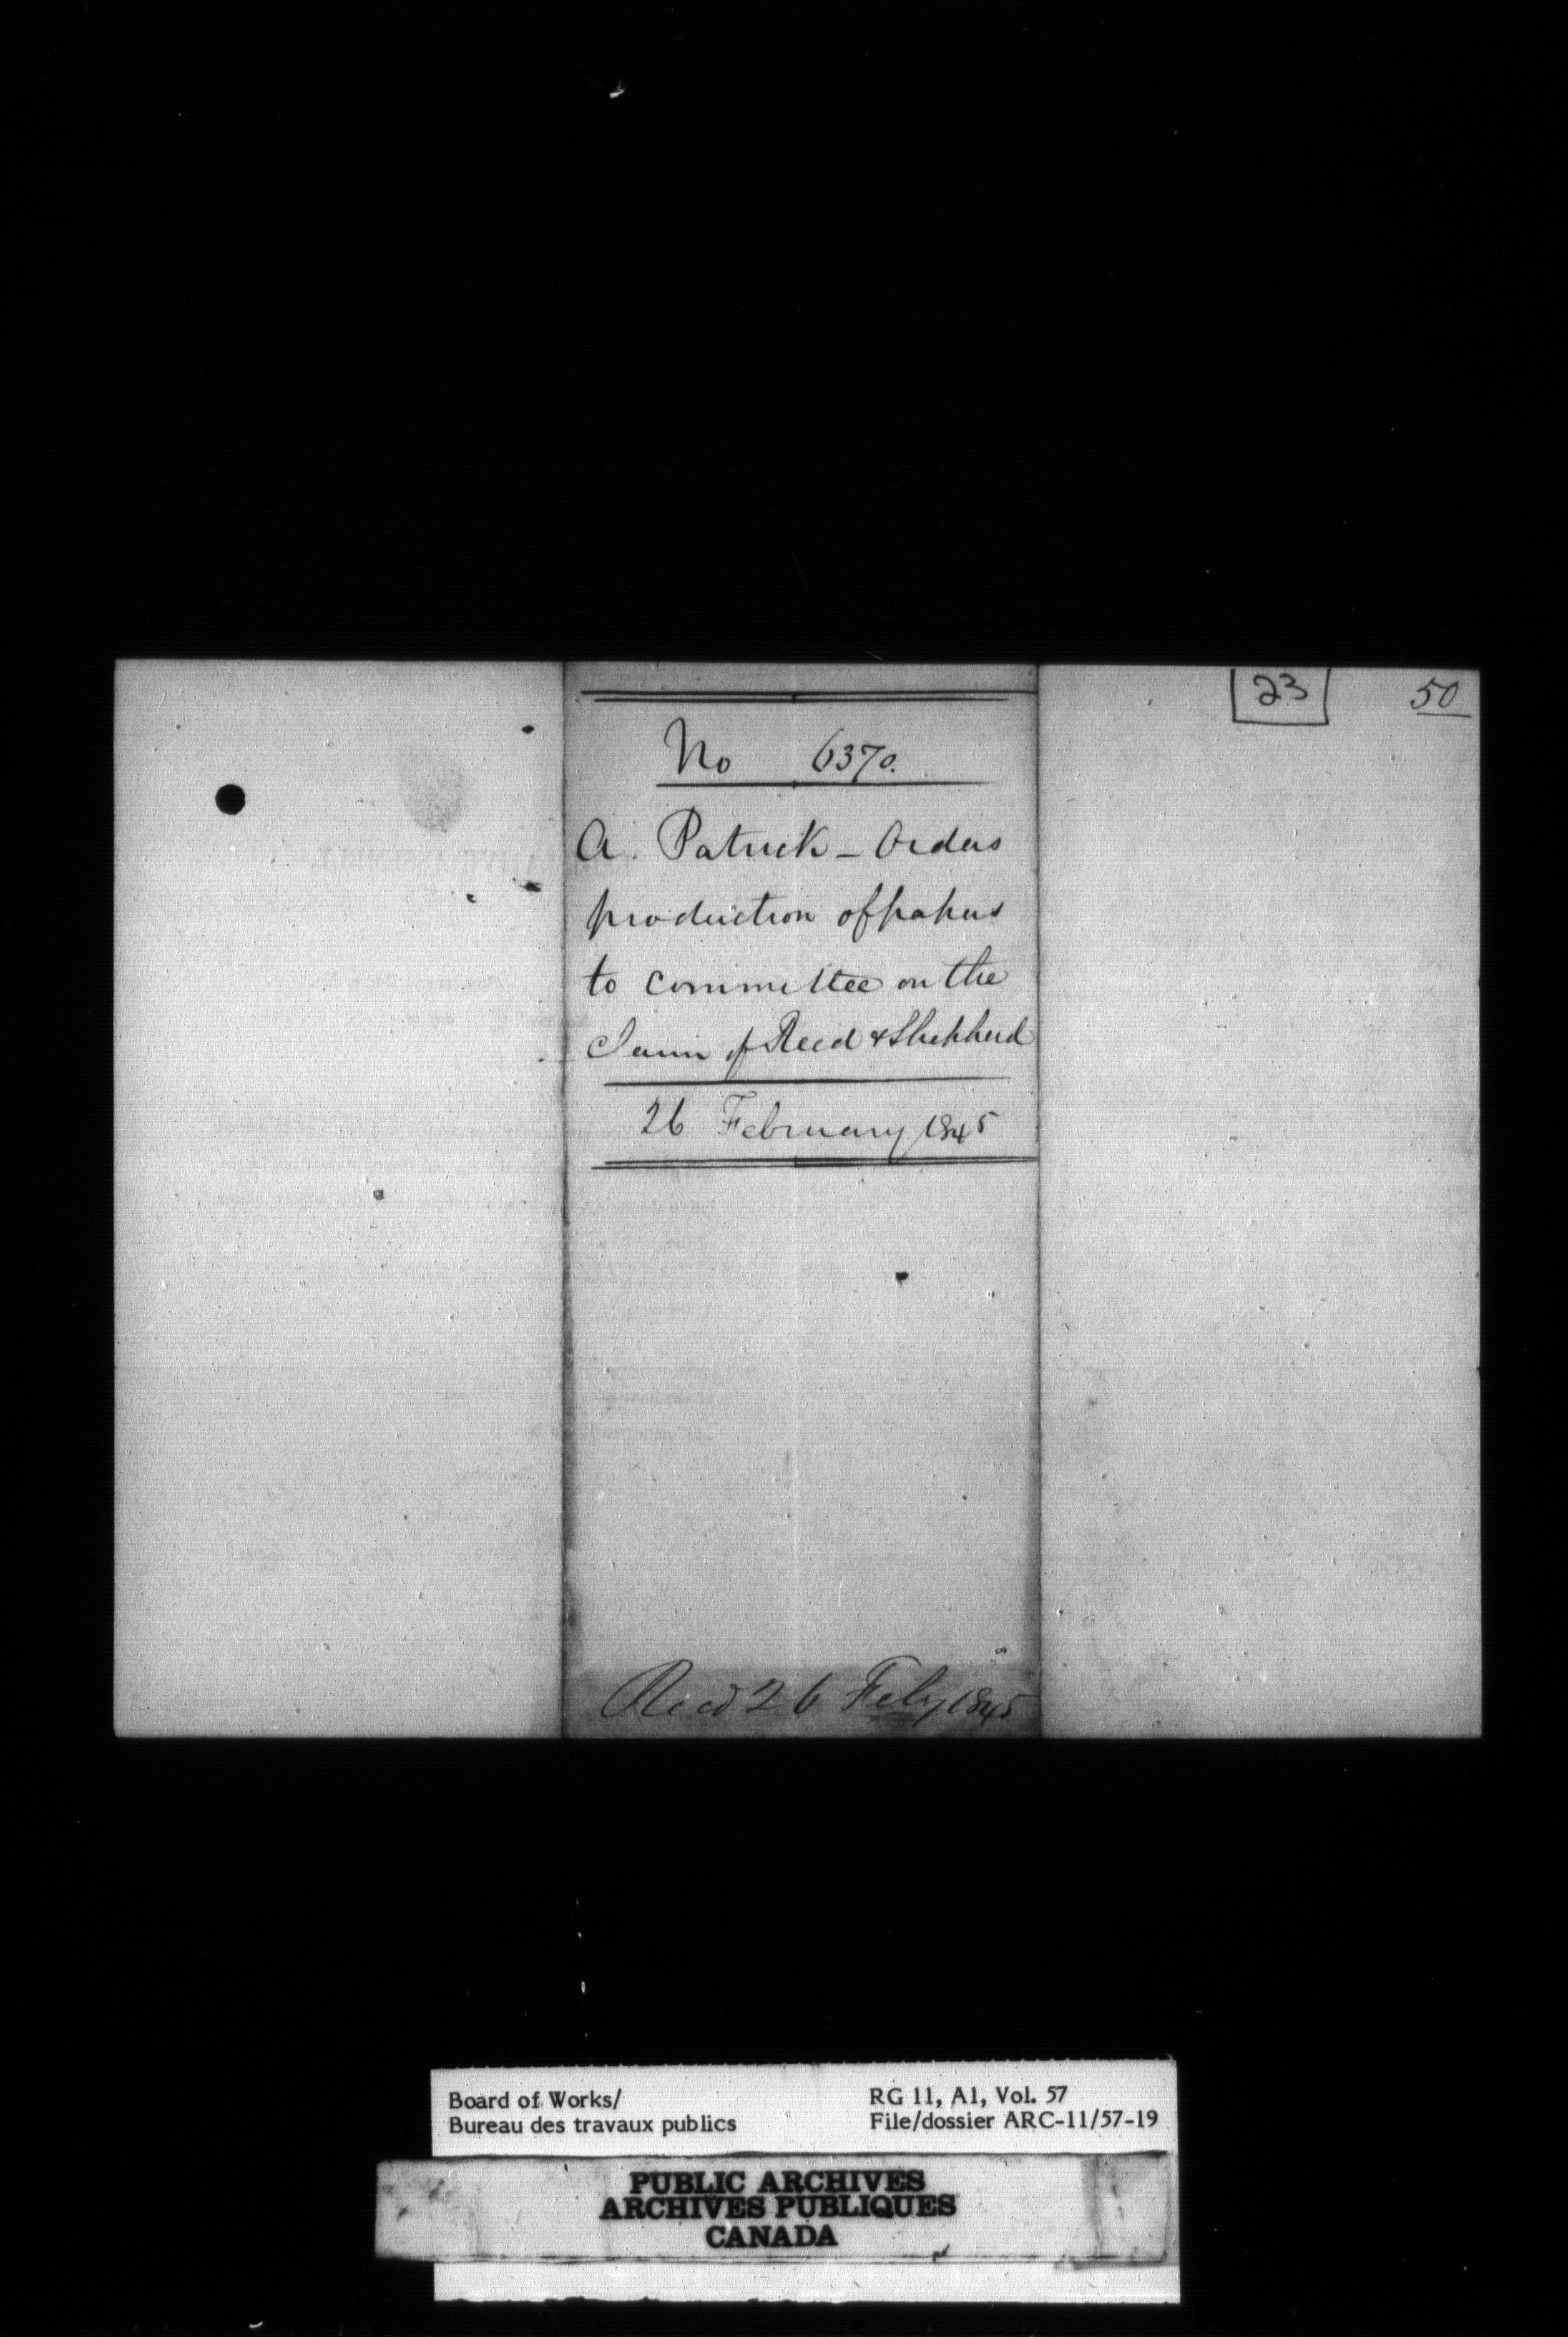 23
50
No 6370.
A. Patrick - Orders
production of papers
to committee on the
Claim of Reed & Shephard
26 February 1845
Recd 26 Feby 1845
Board of Works/
Bureau des travaux publics
RG 11, A1, Vol. 57
File/dossier ARC-11/57-19
PUBLIC ARCHIVES
ARCHIVES PUBLIQUES
CANADA